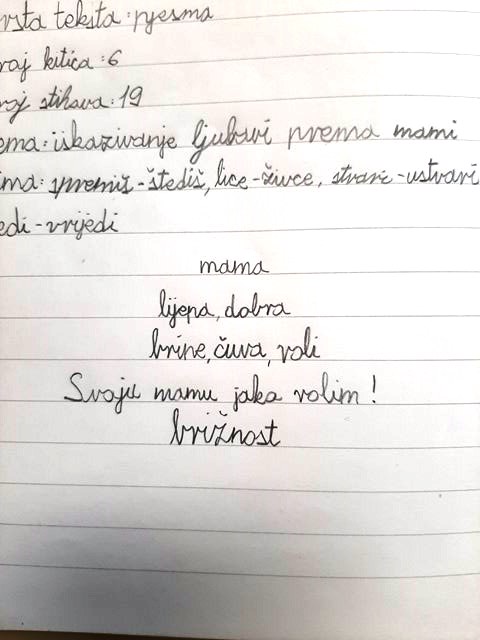 rsta teksta: pjesma
roj kitica: 6
roj stihova: 19
ema: iskazivanje ljubavi prema mami
ima: spremiš - štediš, lice - živce, stvari - ustvari
edi - vrijedi
mama
lijepa, dobra
brine, čuva, voli
Svoju mamu jako volim!
brižnost